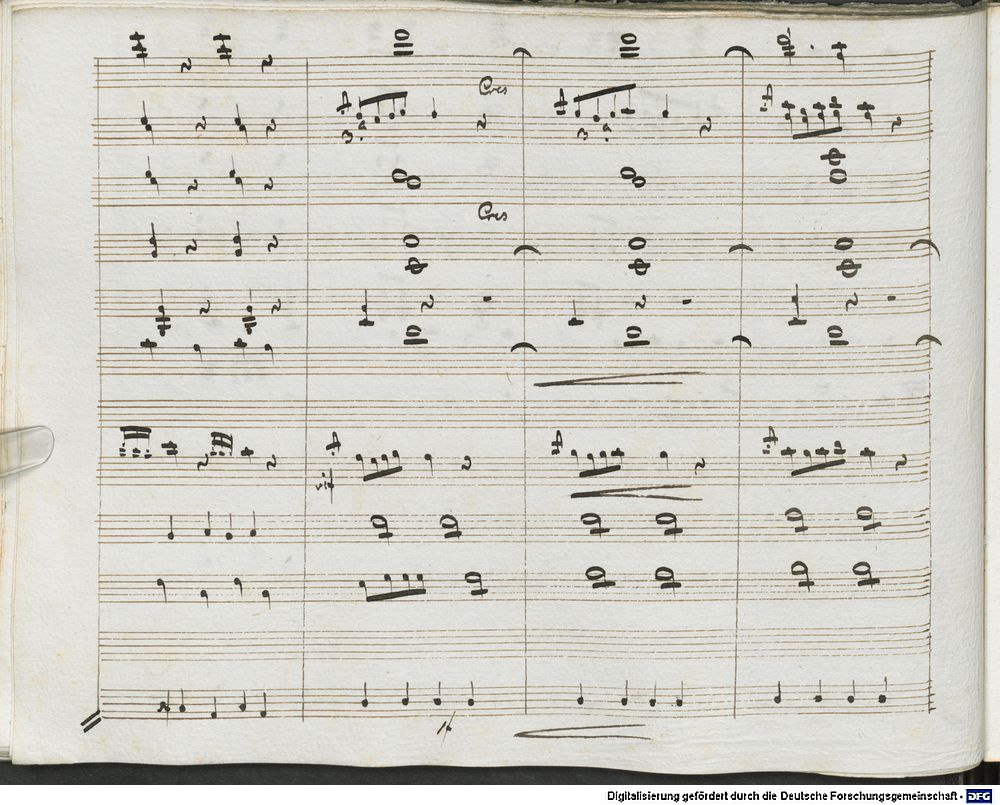 Cres
3
3
Cres
Digitalisierung gefördert durch die Deutsche Forschungsgemeinschaft - DFG